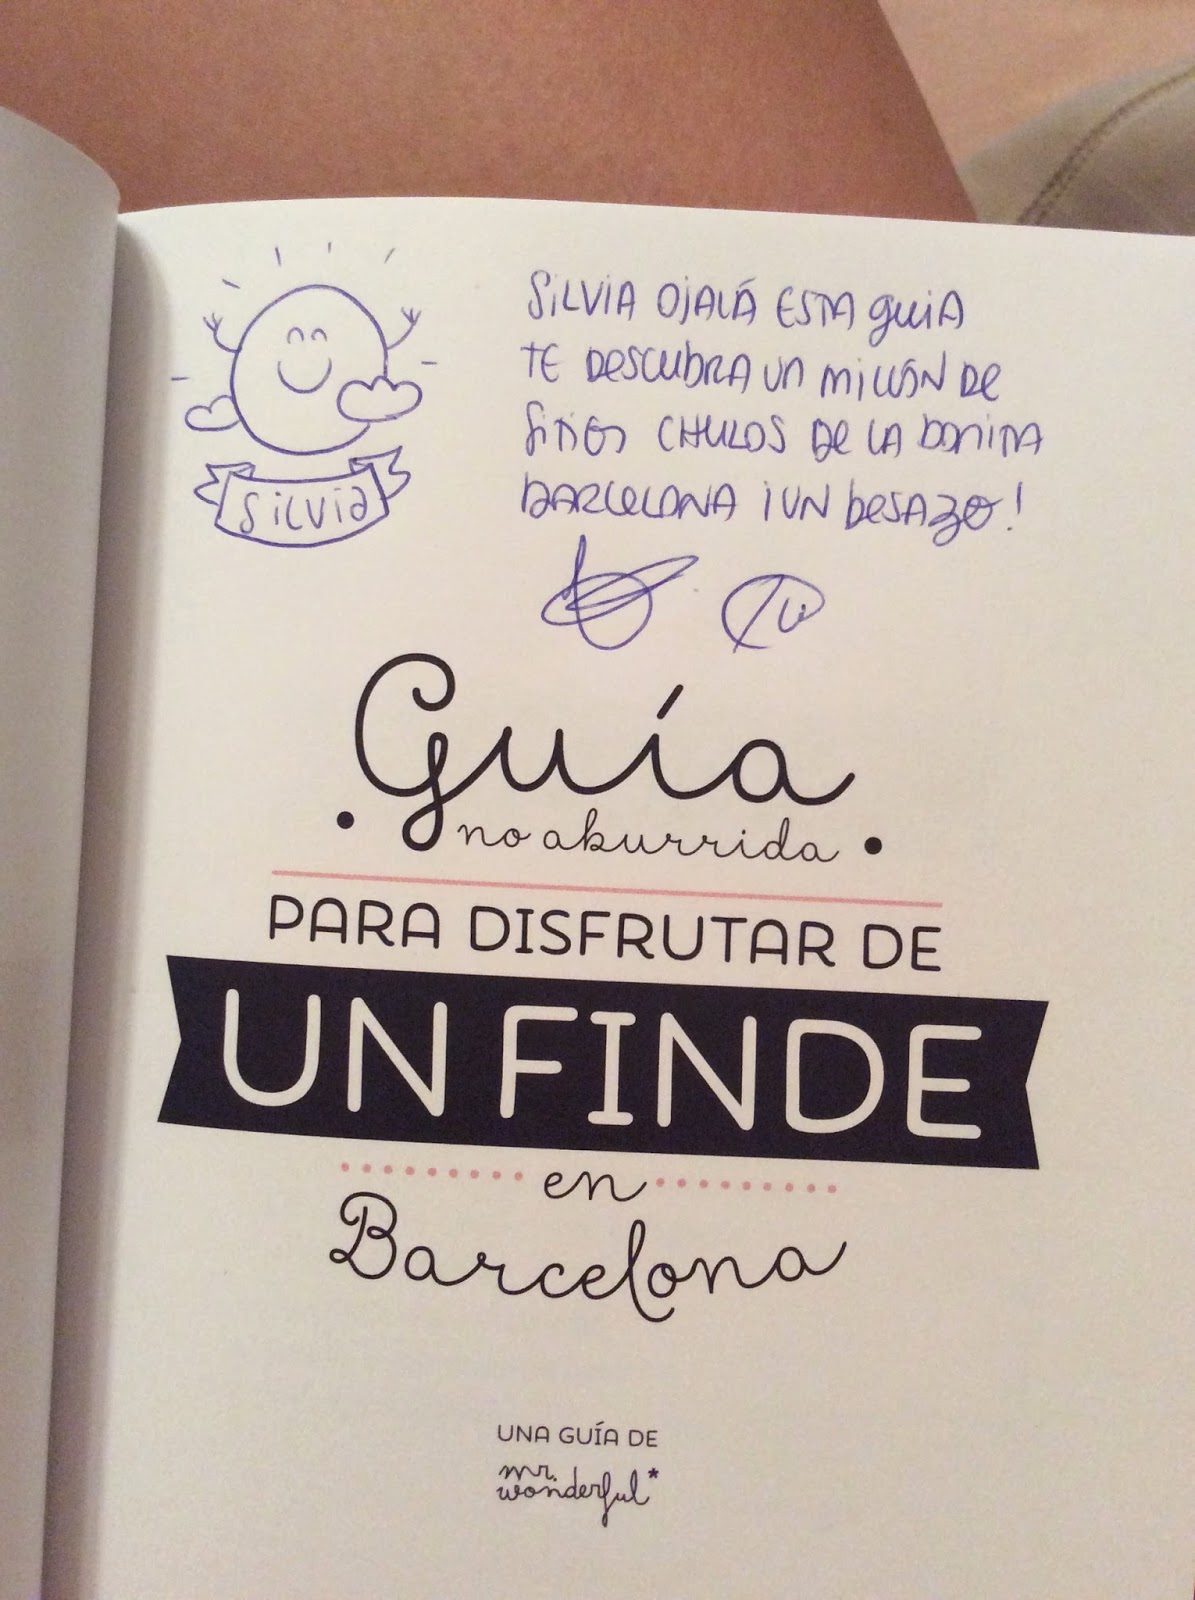 Silvia
SILVIA OJALÁ ESTA GUIA
TE DESCUBRA UN MILLÓN DE
SITIOS CHULOS DE LA BONITA
BARCELONA ¡UN BESAZO!
Guía
no aburrida
PARA DISFRUTAR DE
UN FINDE
en
Barcelona
UNA GUÍA DE
mr.
wonderful*